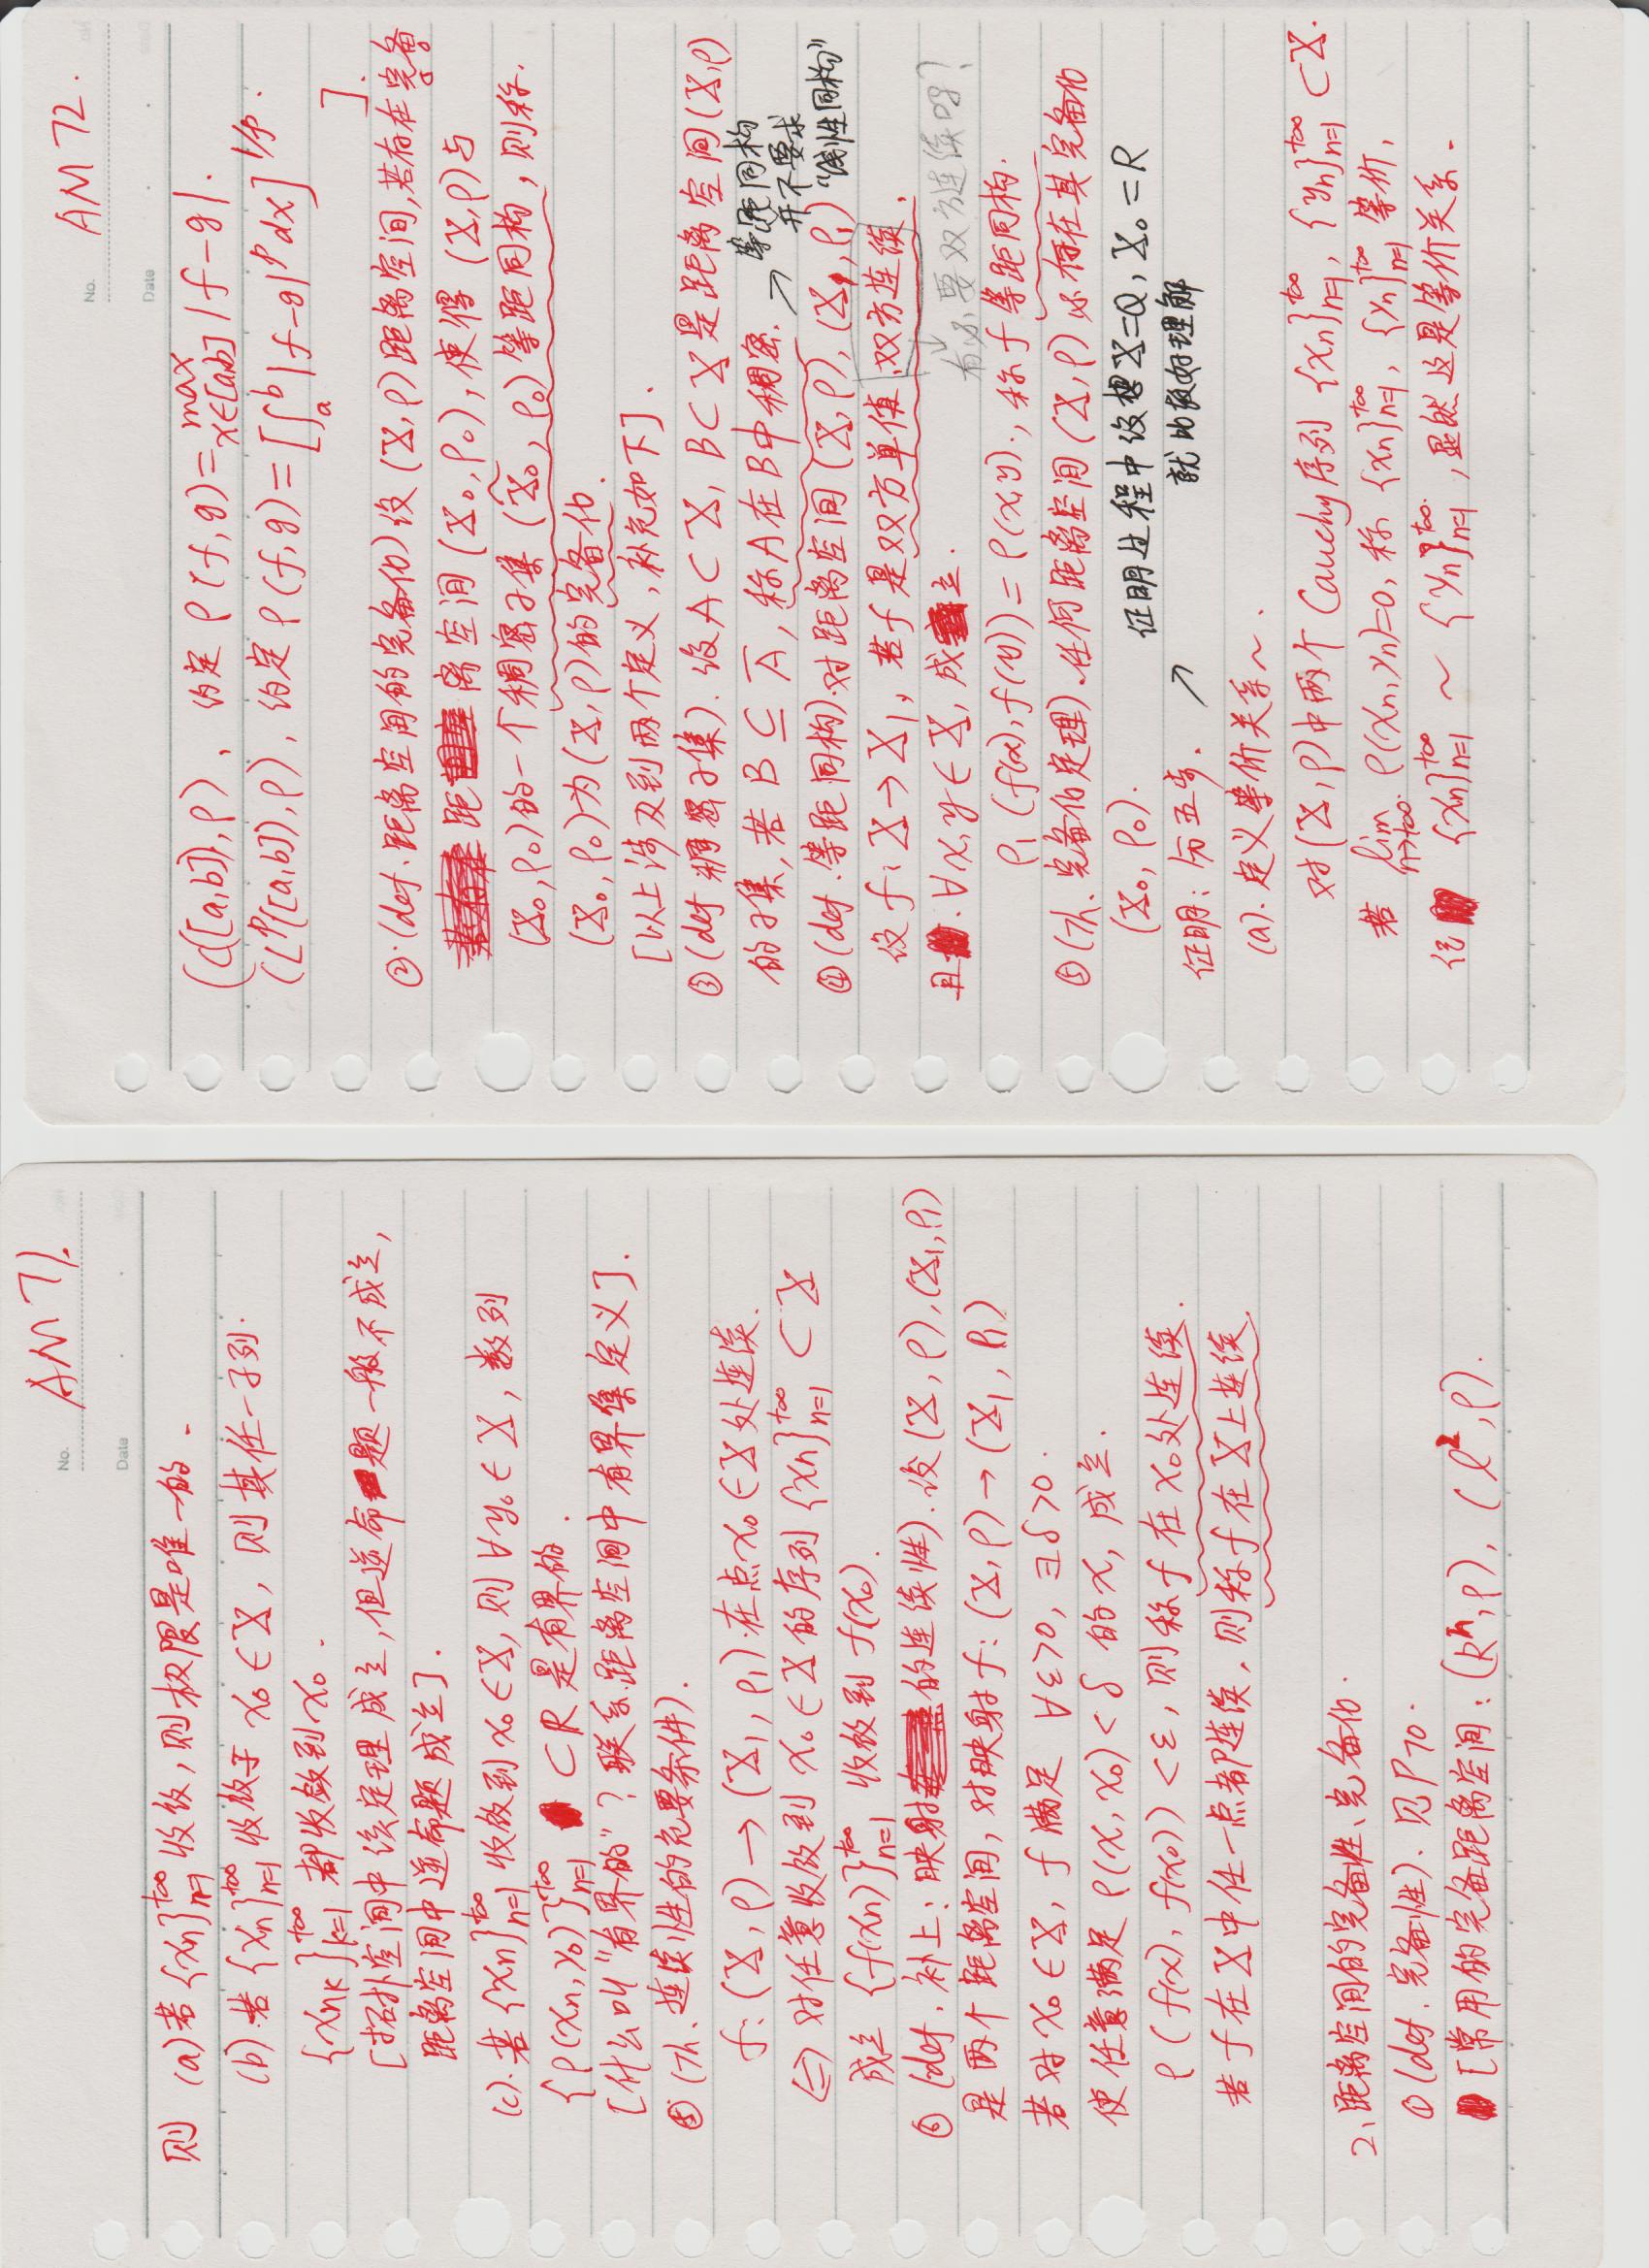 No. AM 71.
Date
则 (a) 若 {xn}_{n=1}^{+∞} 收敛, 则极限是唯一的.
(b). 若 {xn}_{n=1}^{+∞} 收敛于 x0 ∈ X, 则其任一子列
{xnk}_{k=1}^{+∞} 都收敛到 x0.
[拓扑空间中该定理成立, 但逆命题一般不成立,
距离空间中逆命题成立].
(c). 若 {xn}_{n=1}^{+∞} 收敛到 x0 ∈ X, 则 ∀y0 ∈ X, 数列
{ρ(xn, y0)}_{n=1}^{+∞} ⊂ R 是有界的.
[什么叫"有界的"? 联系距离空间中有界集定义].
⑤ (Th. 连续性的充要条件).
f: (X, ρ) → (X1, ρ1) 在点 x0 ∈ X 处连续.
⇔ 对任意收敛到 x0 ∈ X 的序列 {xn}_{n=1}^{+∞} ⊂ X
成立 {f(xn)}_{n=1}^{+∞} 收敛到 f(x0).
⑥ (def. 补上: 映射的连续性). 设 (X, ρ), (X1, ρ1)
是两个距离空间, 对映射 f: (X, ρ) → (X1, ρ1)
若对 x0 ∈ X, f 满足 ∀ε>0, ∃δ>0.
使任意满足 ρ(x, x0) < δ 的 x, 成立.
ρ(f(x), f(x0)) < ε, 则称 f 在 x0 处连续.
若 f 在 X 中任一点都连续, 则称 f 在 X 上连续.
2. 距离空间的完备性、完备化.
① (def. 完备性). 见 P70.
[常用的完备距离空间: (R^n, ρ), (l^2, ρ).
No. AM 72.
Date
(C([a,b]), ρ), 约定 ρ(f, g) = max_{x∈[a,b]} |f-g|.
(L^p([a,b]), ρ), 约定 ρ(f, g) = [∫_a^b |f-g|^p dx]^{1/p}.
].
②. (def. 距离空间的完备化) 设 (X, ρ) 距离空间, 若存在完备
距离空间 (X0, ρ0), 使得 (X, ρ) 与
(X0, ρ0) 的一个稠密子集 (X̃0, ρ0) 等距同构, 则称.
(X0, ρ0) 为 (X, ρ) 的完备化.
[以上涉及到两个定义, 补充如下].
③ (def 稠密子集). 设 A ⊂ X, B ⊂ X 是距离空间 (X, ρ)
的子集, 若 B ⊆ A̅, 称 A 在 B 中稠密.
↗ 等距同构
并不要求
"线性同构"
④ (def. 等距同构). 对距离空间 (X, ρ), (X1, ρ1)
设 f: X → X1, 若 f 是双方单值 双方连续,
有必要双方连续吗?
且. ∀x, y ∈ X, 成立.
ρ1(f(x), f(y)) = ρ(x,y)., 称 f 等距同构.
⑤ (Th. 完备化定理). 任何距离空间 (X, ρ) 必存在其完备化
(X0, ρ0).
证明过程中设想 X=Q, X0=R
就比较好理解
证明: 分五步. ↗
(a). 定义等价关系 ~.
对 (X, ρ) 中两个 Cauchy 序列 {xn}_{n=1}^{+∞}, {yn}_{n=1}^{+∞} ⊂ X.
若 lim_{n→+∞} ρ(xn, yn)=0, 称 {xn}_{n=1}^{+∞}, {yn}_{n=1}^{+∞} 等价,
记 {xn}_{n=1}^{+∞} ~ {yn}_{n=1}^{+∞}, 显然这是等价关系.